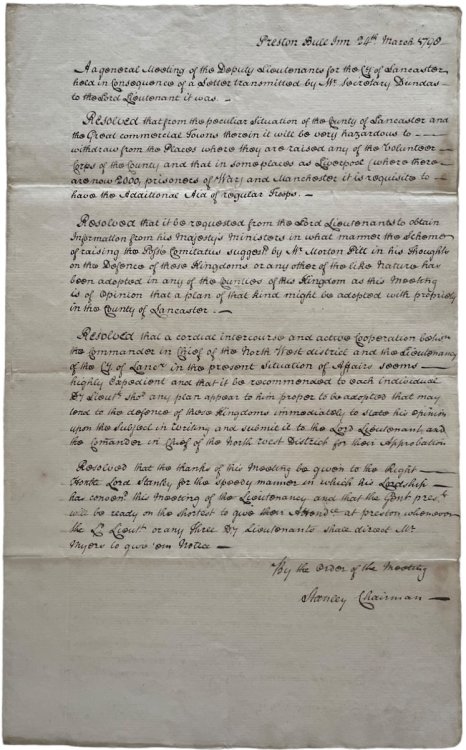 Preston Bull Inn 24th March 1798
At a general Meeting of the Deputy Lieutenants for the Cty of Lancaster
held in Consequence of a Letter transmitted by Mr Secretary Dundas
to the Lord Lieutenant it was. —
Resolved that from the peculiar Situation of the County of Lancaster and
the Great commercial Towns therein it will be very hazardous to — —
withdraw from the Places where they are raised any of the Volunteer —
Corps of the County and that in some places as Liverpool (where there —
are now 2000, prisoners of War) and Manchester it is requisite to —
have the Additional Aid of regular Troops. —
Resolved that it be requested from the Lord Lieutenants to obtain
Information from his Majesty's Ministers in what manner the Scheme
of raising the Posse Comitatus suggest'd by Mr Morton Pitt in his Thoughts
on the Defence of these Kingdoms or any other of the like Nature has
been adopted in any of the Counties of this Kingdom as this Meeting
is of Opinion that a plan of that kind might be adopted with propriety
in the County of Lancaster. —
Resolved that a cordial intercourse and active Cooperation betwn
the Commander in Chief of the North West district and the Lieutenancy
of the Cty of Lancr in the present Situation of Affairs seems —
highly Expedient and that it be recommended to each individual
Dy Lieutt shod any plan appear to him proper to be adopted that may
tend to the defence of these Kingdoms immediately to state his Opinion
upon the Subject in Writing and submit it to the Lord Lieutenant and
the Comander in Chief of the North West District for their Approbation
Resolved that the thanks of this Meeting be given to the Right —
Honle Lord Stanley for the speedy manner in which his Lordship —
has conven'd this Meeting of the Lieutenancy and that the Gent pres't
will be ready on the shortest to give their Attendce at preston whenever
the Ld Lieutt or any three Dy Lieutenants shall direct Mr
Myers to give 'em Notice —
By the Order of the Meeting
Stanley Chairman —